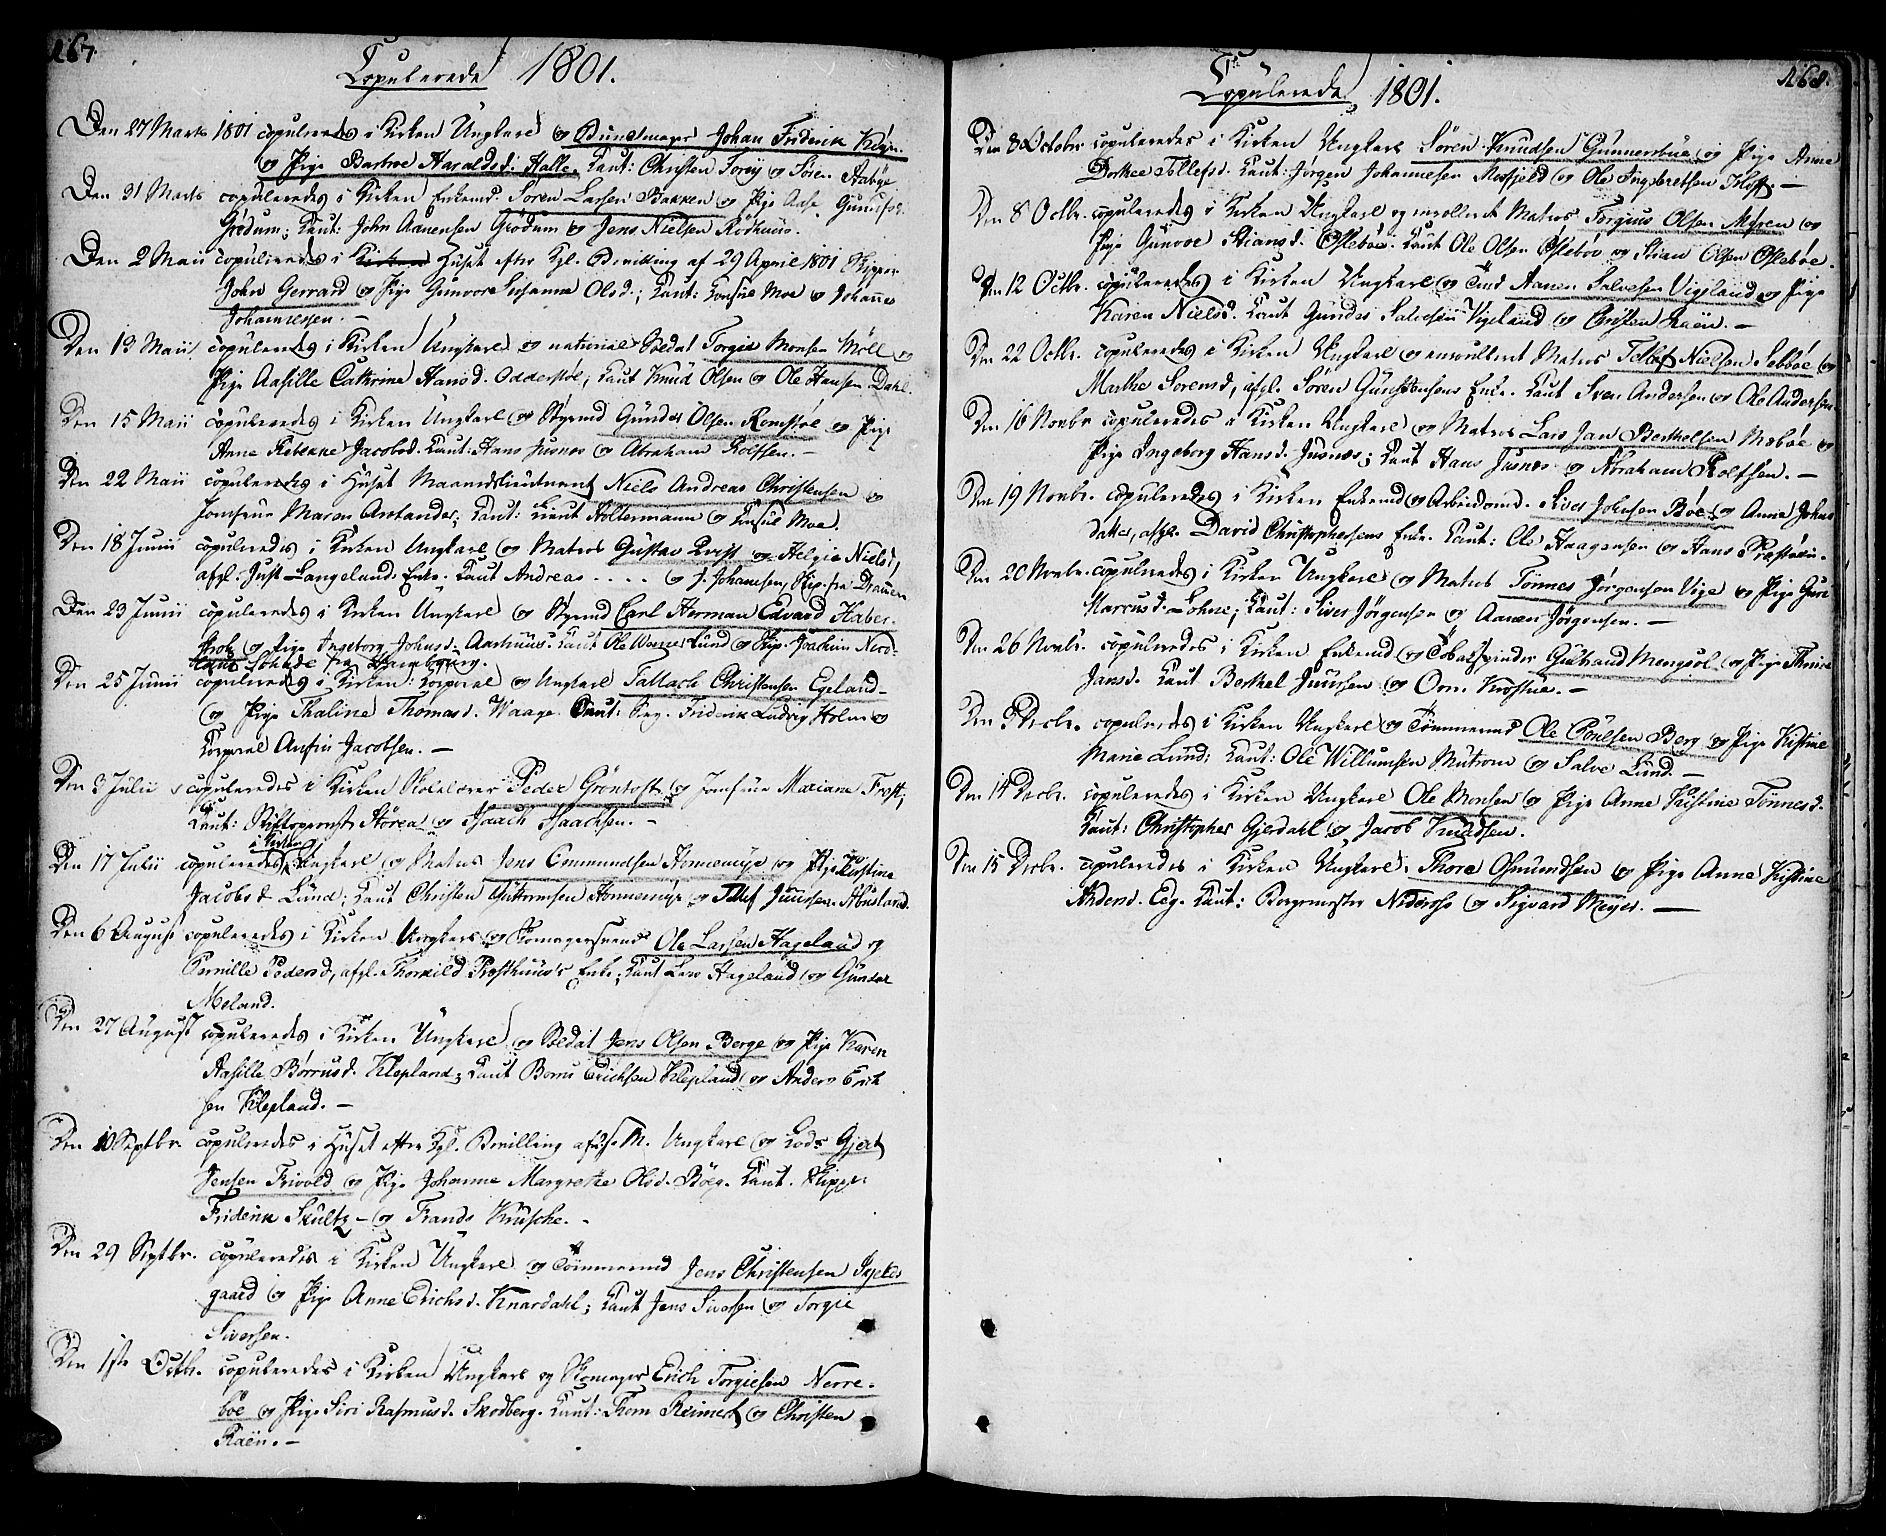 167.
Copulerede 1801.
Den 27 Marts 1801 copuleredes i Kirken Ungkarl og Bundtmager Johan Friderik
og Pige Barbroe Haraldsd. Halle. Caut: Christen Torøy og Søren Aabye
Den 31 Marts copuleredes i Kirken Enkemd. Søren Larsen Bakken og Pige Aase Gundersd.
Grødum; Caut: John Aanensen Grødum og Jens Nielsen Rödhuus.
Den 2 Maii copuleredes i Huset efter Kgl. Bevilling af 29 April 1801 Skipper
John Gerrard og Pige Gunvor Susanna Olsd.; Caut: Consul Moe og Johannes
Johannessen. -
Den 13 Maii copuleredes i Kirken Ungkarl og national Soldat Torgie Monsen Möll og
Pige Aasille Cathrine Hansd. Odderstöl; Caut Knud Olsen og Ole Hansen Dahl.
Den 15 Maii copuleredes i Kirken Ungkarl og Styrmd Gunder Olsen Romstöe og Pige
Anne Rebekke Jacobsd. Caut: Hans Jusnes og Abraham Rolfsen. -
Den 22 Maii copuleredes i Huset Maanedslieutnent Niels Andreas Christensen og
Jomfrue Maren Arctander; Caut: Lieut Holtermann og Consul Moe.
Den 18 Junii copuleredes i Kirken Ungkarl og Matros Gustav Qvist og Helgie Nielsd,
afgl. Just Langelands Enke. Caut Andreas . . . . og J. Johannesen, Skip. fra Drammen
Den 23 Junii copuleredes i Kirken Ungkarl og Styrmd Carl Herman Edvard Haber-
stroh og Pige Ingeborg Johnsd. Aarhuus. Caut Ole Werner Lund og Skip. Joachim Nico-
laus Sohnde fra Hamborg.
Den 25 Junii copuleredes i Kirken: Korporal og Ungkarl Tallach Christensen Egeland
og Pige Thaline Thomasd. Waage. Caut: Serg. Friderik Ludvig Holm og
Korporal Anfin Jacobsen. -
Den 3 Julii copuleredes i Kirken Skolelærer Peder Gröntoft og Jomfrue Mariane Frost;
Caut: Stiftsprovst Stören og Isaach Isaachsen. -
i Kirken
Den 17 Julii copuleredes Ungkarl og Matros Jens Ommundsen Homemyr og Pige Kirstine
Jacobsd Lund; Caut Christen Guttormsen Homemyr og Tellef Juursen Abusland.
Den 6 August copuleredes i Kirken Ungkarl og Skomagersvend Ole Larsen Hageland og
Pernille Pedersd, afgl. Thorkild Præsthuus's Enke; Caut Lars Hageland og Gunder
Meland.
Den 27 August copuleredes i Kirken Ungkarl og Soldat Jens Olsen Berge og Pige Karen
Aasille Börrusd. Klepland; Caut Borni Erichsen Klepland og Anders Erich
sen Klepland. -
Den 10 Septbr. copuleredes i Huset efter Kgl. Bevilling af M. Ungkarl og Lods Gjert
Jensen Frivold og Pige Johanne Margrethe Olsd. Böeg. Caut. Skipper
Friderik Skultz - og Frands Krusche. -
Den 29 Septbr. copuleredes i Kirken Ungkarl og Tömmermd Jens Christensen Skjeks
gaard og Pige Anne Erichsd. Knardahl; Caut Jens Siversen og Torgie
Siversen.
Den 1ste Octbr. copuleredes i Kirken Ungkarl og Skomager Erich Torgiesen Nerre-
böe og Pige Siri Rasmusd. Skodberg. Caut: Thom Reimert og Christen
Raen. -
168.
Copulerede 1801.
Den 8 Octobr copuleredes i Kirken Ungkarl Sören Knudsen Gunnersbue og Pige Anne
Dorthee Tellefsd. Caut: Jörgen Johannesen Mosfjeld og Ole Ingebretsen Thoft. -
Den 8 Octbr. copuleredes i Kirken Ungkarl og enrolleret Matros Torgius Olsen Myren og
Pige Gunvor Stiansd. Oslebøe. Caut Ole Olsen Oslebøe og Stian Olsen Oslebøe.
Den 12 Octbr. copuleredes i Kirken Ungkarl og Aanen Salvesen Vigeland og Pige
Karen Nielsd. Caut Gunder Salvesen Vigeland og Christen Raen. -
Den 22 Octbr. copuleredes i Kirken Ungkarl og enroulleret Matros Tellef Nielsen Sebbøe og
Marthe Sorensd, afgl. Søren Gundersens Enke. Caut Sven Andersen og Ole Andersen
Den 16 Novbr copuleredes i Kirken Ungkarl og Matros Lars Jan Berthelsen Mæbøe og
Pige Ingeborg Hansd. Jusnæs; Caut Hans Jusnæs og Abraham Rolfsen. -
Den 19 Novbr. copuleredes i Kirken Enkemd og Arbeidsmd. Siver Johnsen Böe og Anne Johns
datter, afgl. David Christophersens Enke. Caut: Ole Haagensen og Hans Præstøen.
Den 20 Novbr. copuleredes i Kirken Ungkarl og Matros Tönnes Jörgensen Vige og Pige Guri
Marcusd. Lohne; Caut: Siver Jörgensen og Aanen Jörgensen. -
Den 26 Novbr. copuleredes i Kirken Enkemd og Tobaksspinder Gulbrand Mengsöl og Pige Thrine
Jansd. Caut Berthel Juursen og Orm Krostue. -
Den 3 Decbr. copuleredes i Kirken Ungkarl og Tömmermd Ole Poulsen Berg og Pige Kistine
Marie Lund; Caut: Ole Willumsen Mutrom og Salve Lund. -
Den 14 Decbr. copuleredes i Kirken Ungkarl Ole Monsen og Pige Anne Kistine Tönnesd.
Caut: Christopher Gjerdahl og Jacob Knudsen.
Den 15 Decbr. copuleredes i Kirken Ungkarl Thore Osmundsen og Pige Anne Kistine
Andersd. Eeg. Caut: Borgemester Nideros og Sigvard Meyer. -